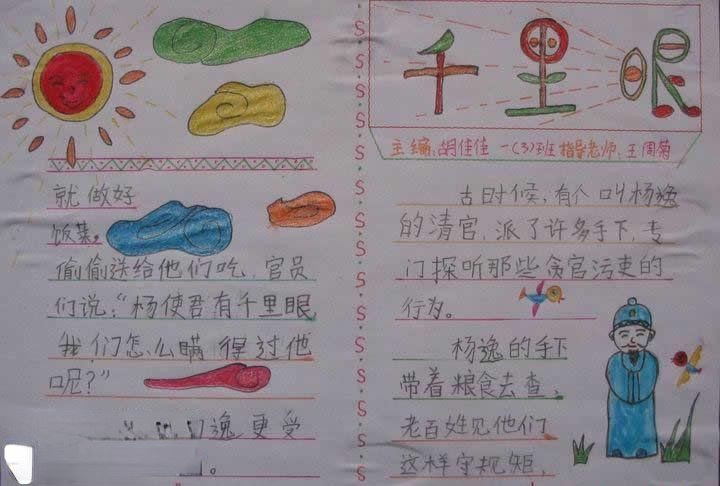 千里眼
主编:胡佳佳 一(3)班 指导老师:王周菊
古时候,有个叫杨逸
的清官,派了许多手下,专
门探听那些贪官污吏的
行为。
杨逸的手下
带着粮食去查,
老百姓见他们
这样守规矩,
就做好
饭菜。
偷偷送给他们吃,官员
们说:“杨使君有千里眼,
我们怎么瞒得过他
呢?”
逸更受
。